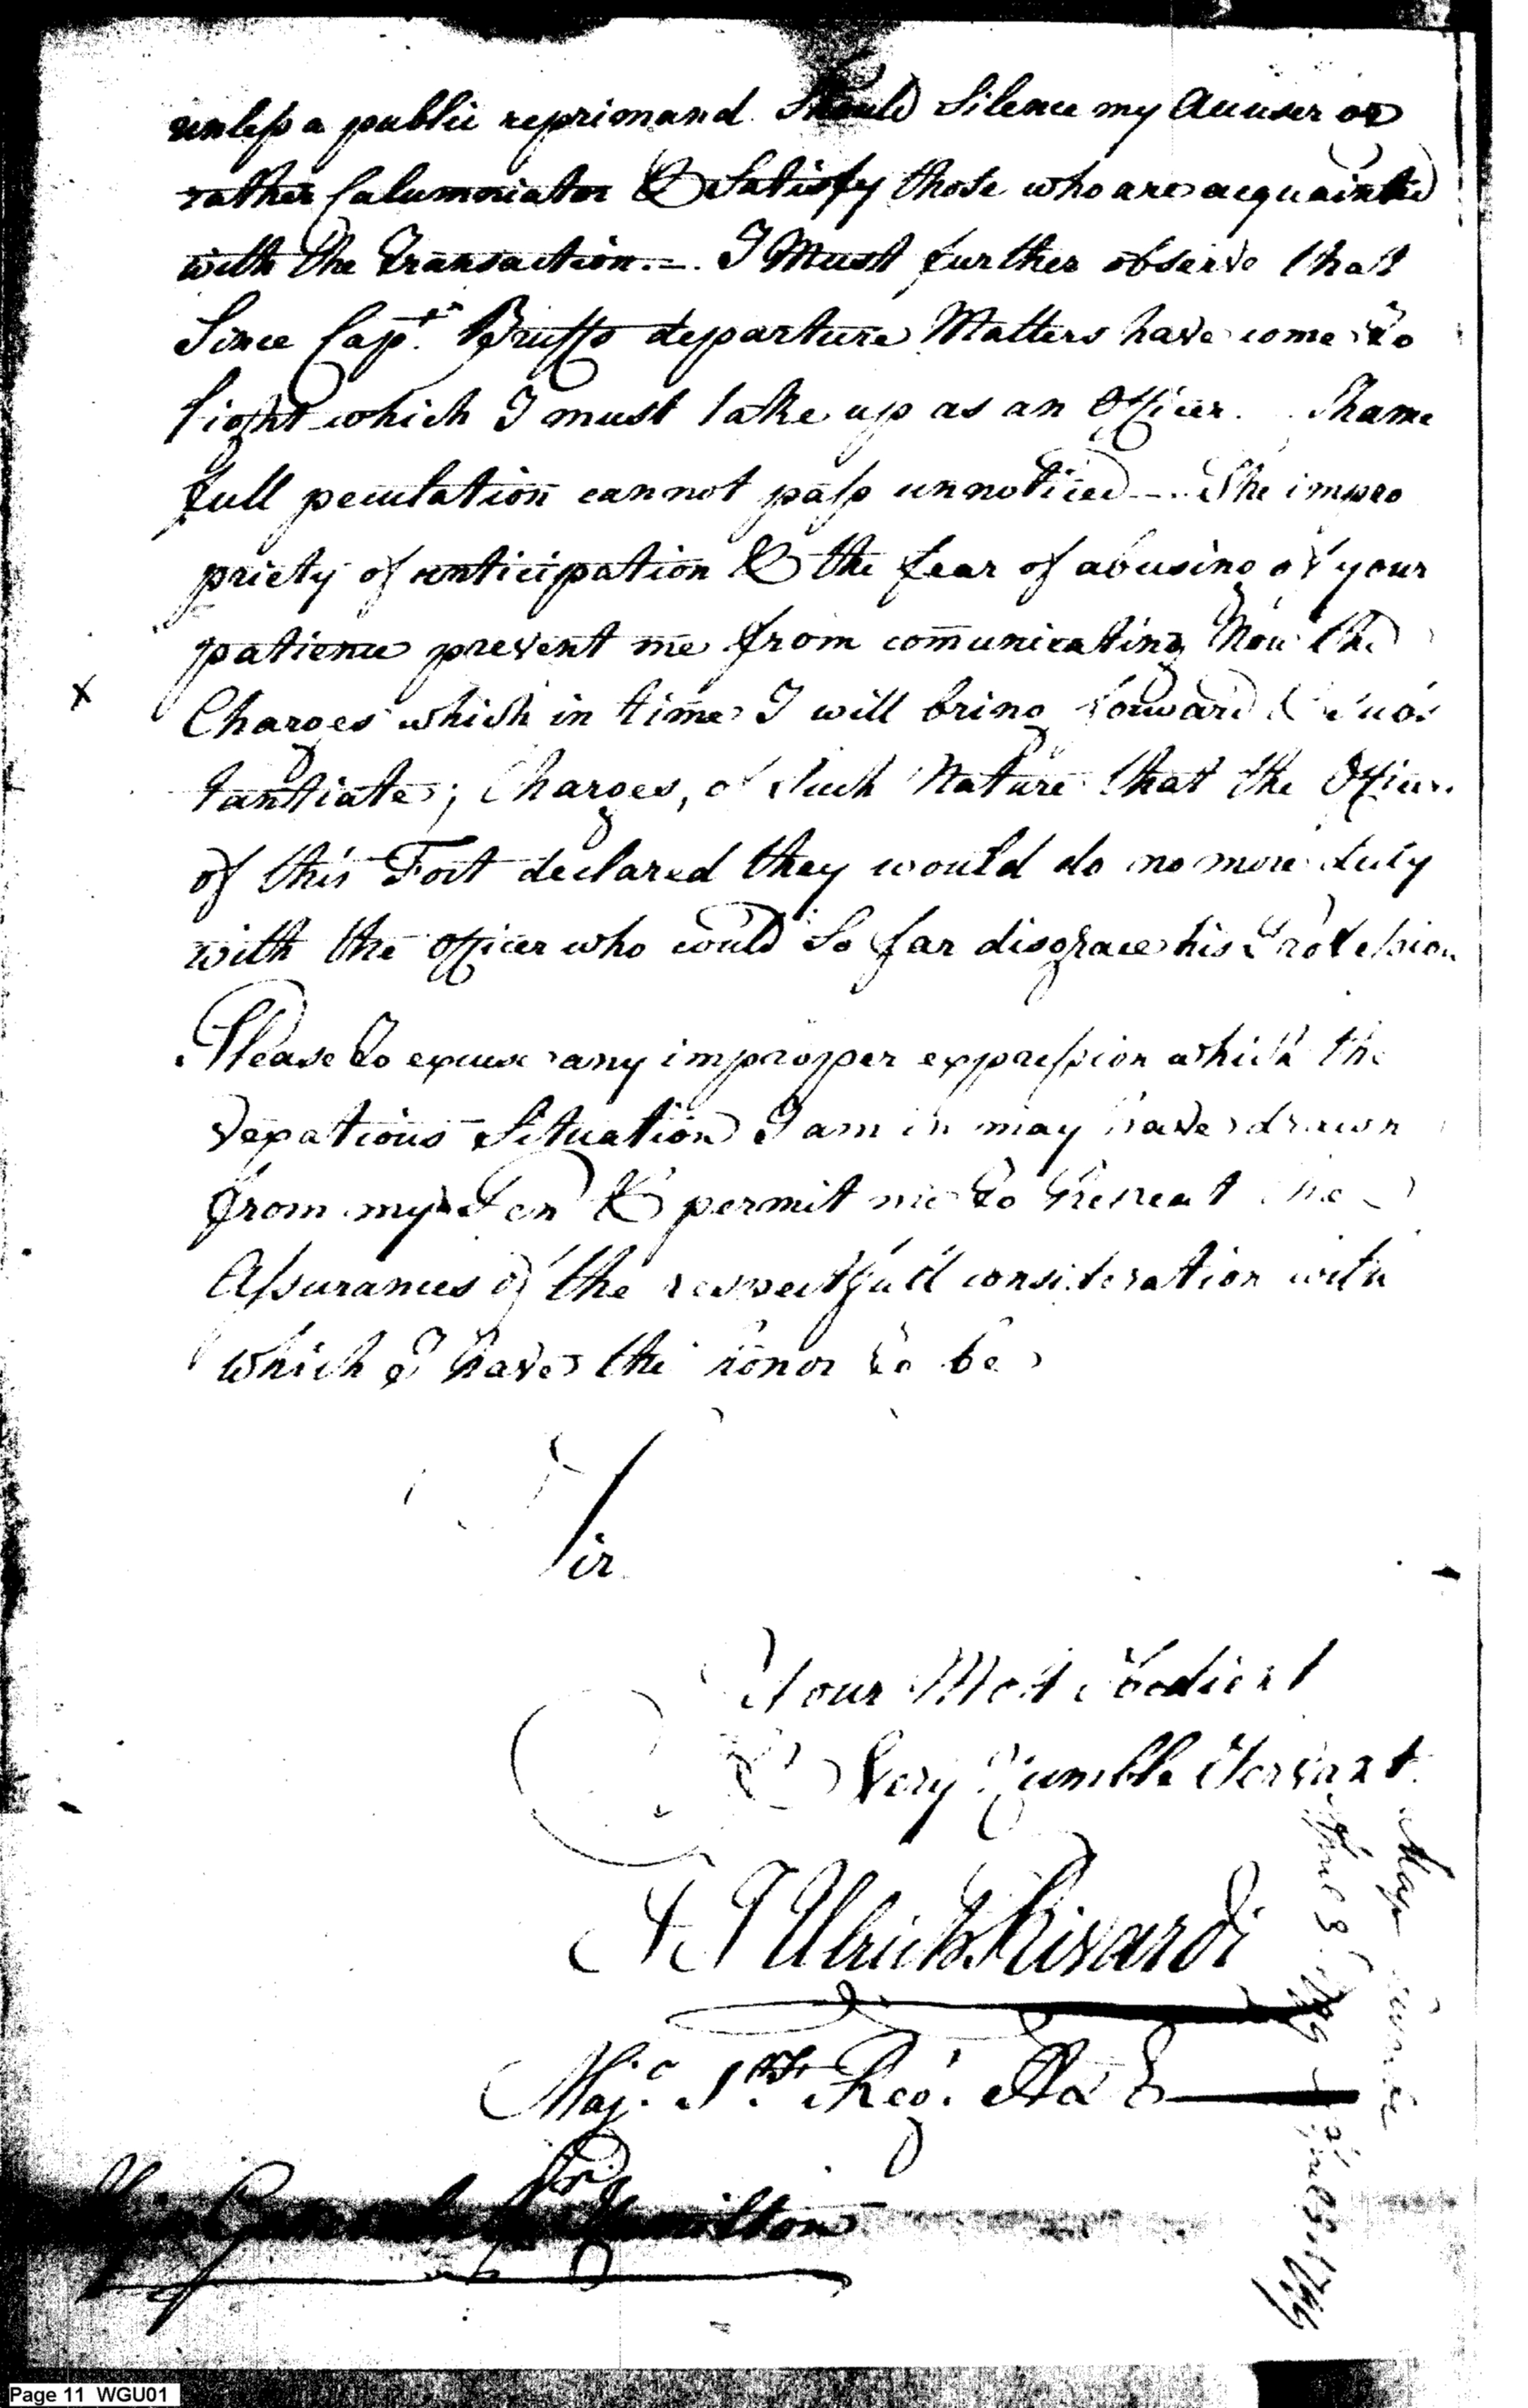 unless a public reprimand Should Silence my Accuser or
rather Calumniator & Satisfy those who are acquainted
with the Transaction. – . I Must further observe that
Since Capt.ⁿ Bruffs departure Matters have come to
light which I must take up as an Officer. . Shame
full peculation cannot pass unnoticed – . The impro
priety of anticipation & the fear of abusing of your
patience prevent me from com̄unicating Now the
x
Charges which in time I will bring forward & Subs
tantiate; Charges, of Such Nature that the Officers
of this Fort declared they would do no more duty
with the officer who could So far disgrace his Profession
Please to excuse any impropper expression which the
Vexatious Situation I am in may have drawn
from my Pen & permit me to Repeat the
Assurances of the respectfull consideration with
which I have the honor to be
Sir
Your Most Obedient
& Very Humble Servant
J J Ulrich Rivardi
Maj.r 1.st Reg.t A & E
Major General Hamilton
Page 11 WGU01